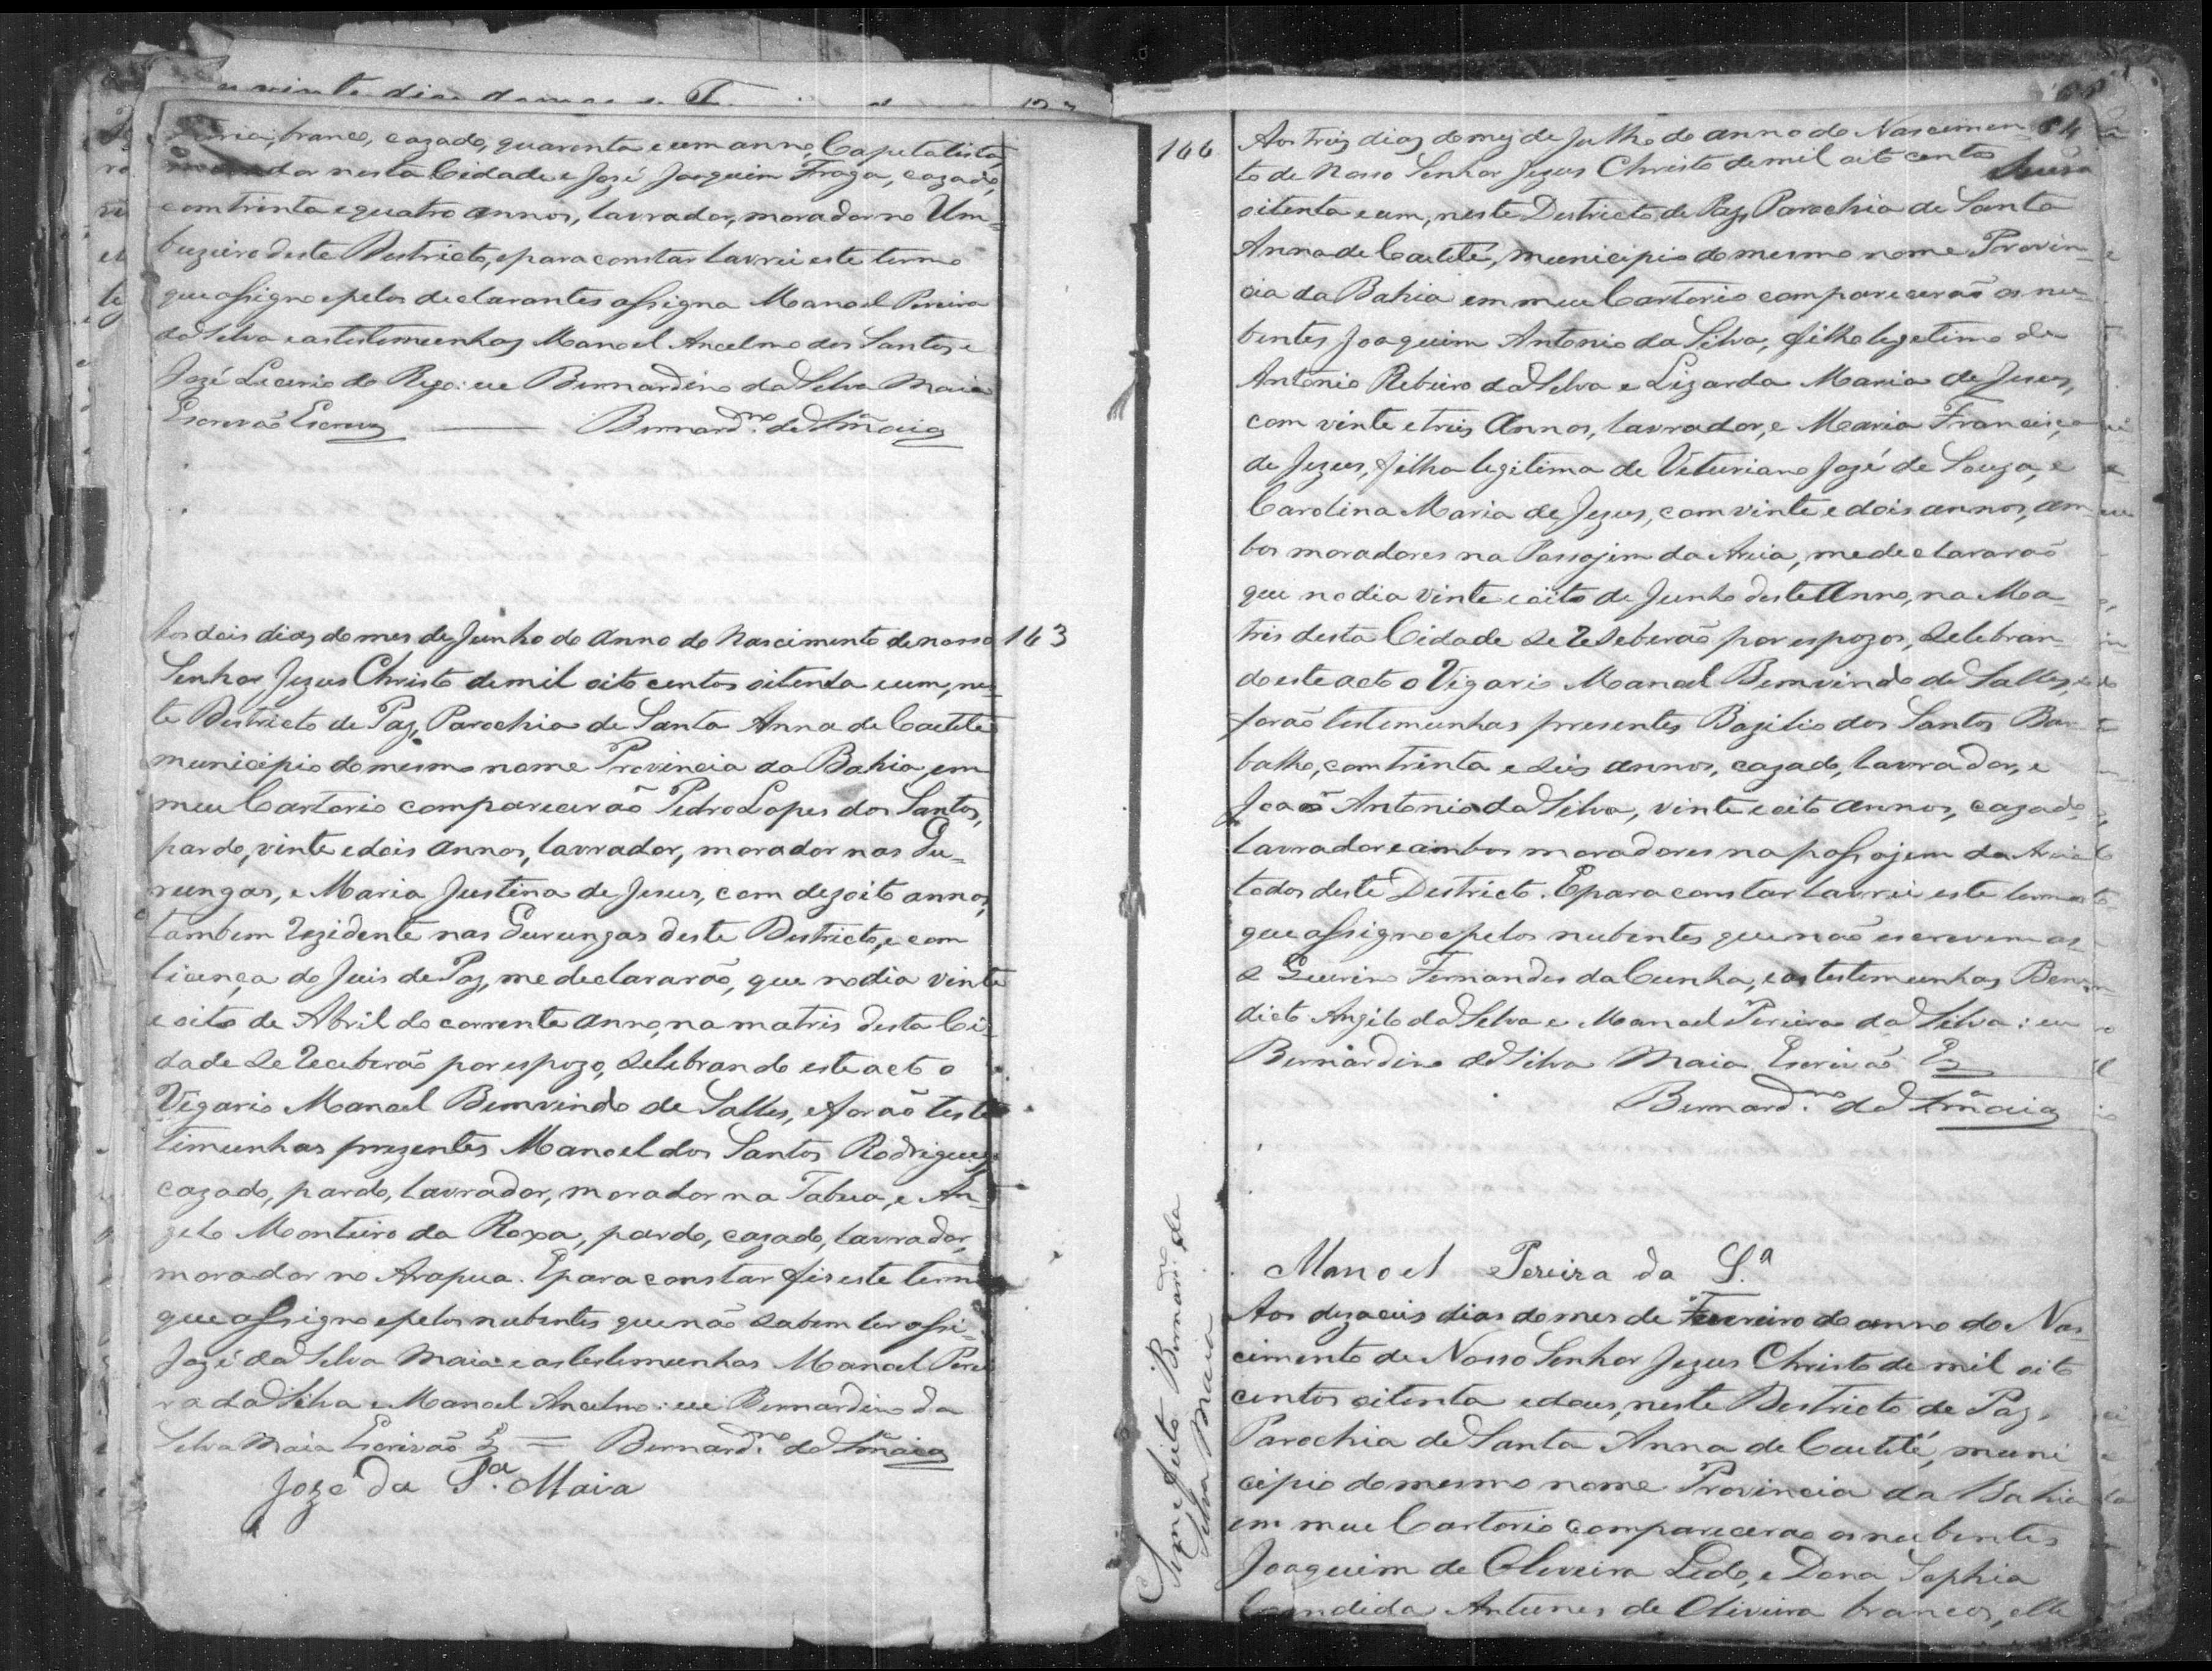 branco, cazado, quarenta e um anno, Capetalista,
morador nesta Cidade e José Joaquim Fraga, cazado,
com trinta e quatro annos, lavrador, morador no Um=
buzeiro deste Destricto, e para constar lavrei este termo
que assigno e pelos declarantes assigna Manoel Pereira
da Silva e as testemunhas Manoel Ancelmo dos Santos e
José Licerio do Rego: eu Bernardino da Silva Maia
Escrivão Escrevy Bernard.no da S.a Maia
163
Aos dois dias do mes de Junho do anno do Nascimento de nosso
Senhor Jezus Christo de mil oito centos oitenta e um, nes
te Destricto de Paz, Parochia de Santa Anna de Caetité
municipio do mesmo nome Provincia da Bahia, em
meu Cartorio comparecerão Pedro Lopes dos Santos,
pardo, vinte e dois annos, lavrador, morador nas Gu=
rungas, e Maria Justina de Jesus, com dezoito annos,
tambem rezidente nas Gurungas deste Destricto, e com
licença do Juis de Paz, me declararão, que no dia vinte
e oito de Abril do corrente anno, na matris desta Ci=
dade se receberão por espozo, selebrando este acto o
Vigario Manoel Bemvindo de Salles, e forão teste
timunhas prezentes Manoel dos Santos Rodrigues
cazado, pardo, lavrador, morador na Tabua, e An=
gelo Monteiro da Roxa, pardo, cazado, lavrador,
morador no Arapua. E para constar fis este termo
que assigno e pelos nubentes que não sabem ler assi=
José da Silva Maia e as testemunhas Manoel Perei
ra da Silva e Manoel Ancelmo: eu Bernardino da
Silva Maia Escrivão Ey = Bernard.no da S.a Maia
Joze da S.a Maia
166
Aos treis dias do mez de Julho do anno do Nascimen
64
to de Nosso Senhor Jezus Christo de mil oito centos
oitenta e um, neste Destricto de Paz, Parochia de Santa
Anna de Caetité, municipio do mesmo nome Provin=
cia da Bahia em meu Cartorio comparecerão os nu=
bentes Joaquim Antonio da Silva, filho legetimo de
Antonio Rebeiro da Silva e Lizarda Maria de Jesus,
com vinte e treis annos, lavrador, e Maria Francisca
de Jezus, filha legitima de Veturiano José de Souza, e
Carolina Maria de Jezus, com vinte e dois annos, am=
bos moradores na Passajem da Areia, me declararão
que no dia vinte e oito de Junho deste Anno, na Ma=
tris desta Cidade se reseberão por espozos, selebran=
do este acto o Vigario Manoel Bemvindo de Salles, e
forão testemunhas presentes Bazilio dos Santos Bar
balho, com trinta e seis annos, cazado, lavrador, e
João Antonio da Silva, vinte e oito annos, cazado,
lavrador e ambos moradores na passajem da Areia
todos deste Destricto. E para constar lavrei este termo
que assigno e pelos nubentes que não escrevem as
s Guerino Fernandes da Cunha, e as testemunhas Bene
dicto Angelo da Silva e Manoel Pereira da Silva: eu
Bernardino da Silva Maia Escrivão Ey
Bernard.no da S.a Maia
Manoel Pereira da S.a
Sem efeito Bernard.no da
Silva Maia
Aos dezaceis dias do mes de Fevereiro do anno do Nas
cimento de Nosso Senhor Jezus Christo de mil oito
centos oitenta e dous, neste Destricto de Paz,
Parochia de Santa Anna de Caetité, muni
cipio do mesmo nome Provincia da Bahia
em meu Cartorio comparecerão os nubentes
Joaquim de Oliveira Ledo, e Dona Sophia
Candida Antunes de Oliveira brancos, elle